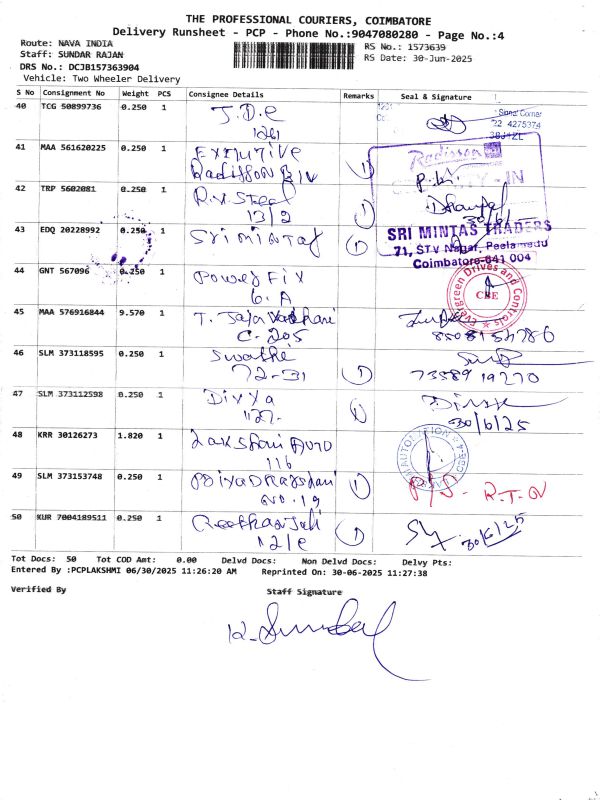 THE PROFESSIONAL COURIERS, COIMBATORE
Delivery Runsheet - PCP - Phone No.:9047080280 - Page No.:4
Route: NAVA INDIA
Staff: SUNDAR RAJAN
RS No.: 1573639
DRS No.: DCJB157363904
RS Date: 30-Jun-2025
Vehicle: Two Wheeler Delivery
S No Consignment No Weight PCS Consignee Details Remarks Seal & Signature
40 TCG 50899736 0.250 1 J.D.C
Signal Corner
22 4275374
121
41 MAA 561620225 0.250 1 Exicutive
Radisson
Radisson BLU 1
42 TRP 5602081 0.250 1 R.V. Steel
13/2 1 30/6/25
43 EDQ 20228992 0.250 1 Sri mintas 1
SRI MINTAS TRADERS
71, STV Nagar, Peelamedu
Coimbatore-641 004
44 GNT 567096 0.250 1 Power Fix
6. A
Evergreen Drives and Controls
CBE
45 MAA 576916844 9.570 1
C-205
46 SLM 373118595 0.250 1 Swathi
72-31 1 7358919270
47 SLM 373112598 0.250 1 Divya
1 30/6/25
48 KRR 30126273 1.820 1 Lakshmi Auto
116
49 SLM 373153748 0.250 1 1 R.T.N
No. 19
50 KUR 7004189511 0.250 1
12/e 1 30/6/25
Tot Docs: 50 Tot COD Amt: 0.00 Delvd Docs: Non Delvd Docs: Delvy Pts:
Entered By :PCPLAKSHMI 06/30/2025 11:26:20 AM Reprinted On: 30-06-2025 11:27:38
Verified By Staff Signature